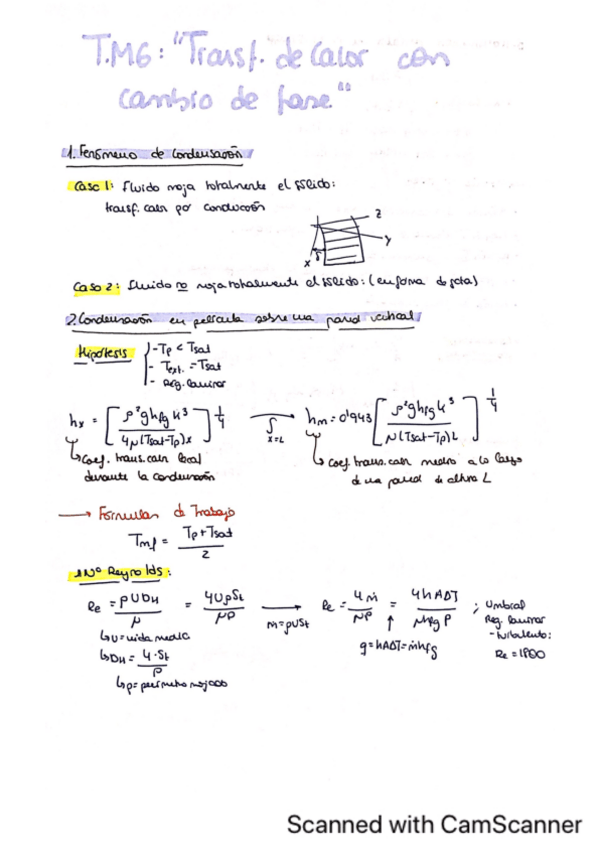 T.M6: "Transf. de Calor con
cambio de fase"
1. Fenómeno de Condensación
Caso 1: Fluido moja totalmente el sólido:
transf. calor por conducción
z
y
x δ
Caso 2: Fluido no moja totalmente el sólido: (en forma de gota)
2. Condensación en película sobre una pared vertical
Hipótesis
- Tp < Tsat
- Text. = Tsat
- Reg. laminar
hx = [ρ²ghfgk³ / 4μ(Tsat-Tp)x]^1/4 → ∫ x=L hm = 0'943 [ρ²ghfgk³ / μ(Tsat-Tp)L]^1/4
↳ Coef. trans. calor local
durante la condensación
↳ Coef. trans. calor medio a lo largo
de una pared de altura L
→ Formulas de Trabajo
Tmf = Tp + Tsat / 2
1 Nº Reynolds:
Re = ρUDH / μ = 4UρSt / μP → m = ρUSt Re = 4ṁ / μP = 4hAΔT / μhfg P ; Umbral
Reg. laminar
- turbulento:
Re = 1800
q = hAΔT = ṁhfg
↳ U = media
↳ DH = 4·St / P
↳ p = perímetro mojado
Scanned with CamScanner